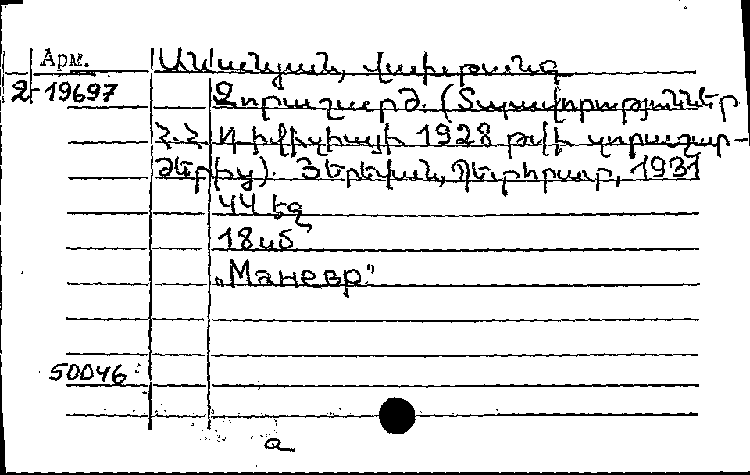 Арм.
Անանյան, Վախթանգ
2-19697
Զորաշարժ. (Տպավորություններ
Հ.Հ. Դիվիզիայի 1928 թվի զորաշար-
ժերից). Յերեվան, Պետհրատ, 1931
44 եջ
18սմ
„Маневр."
50046
а